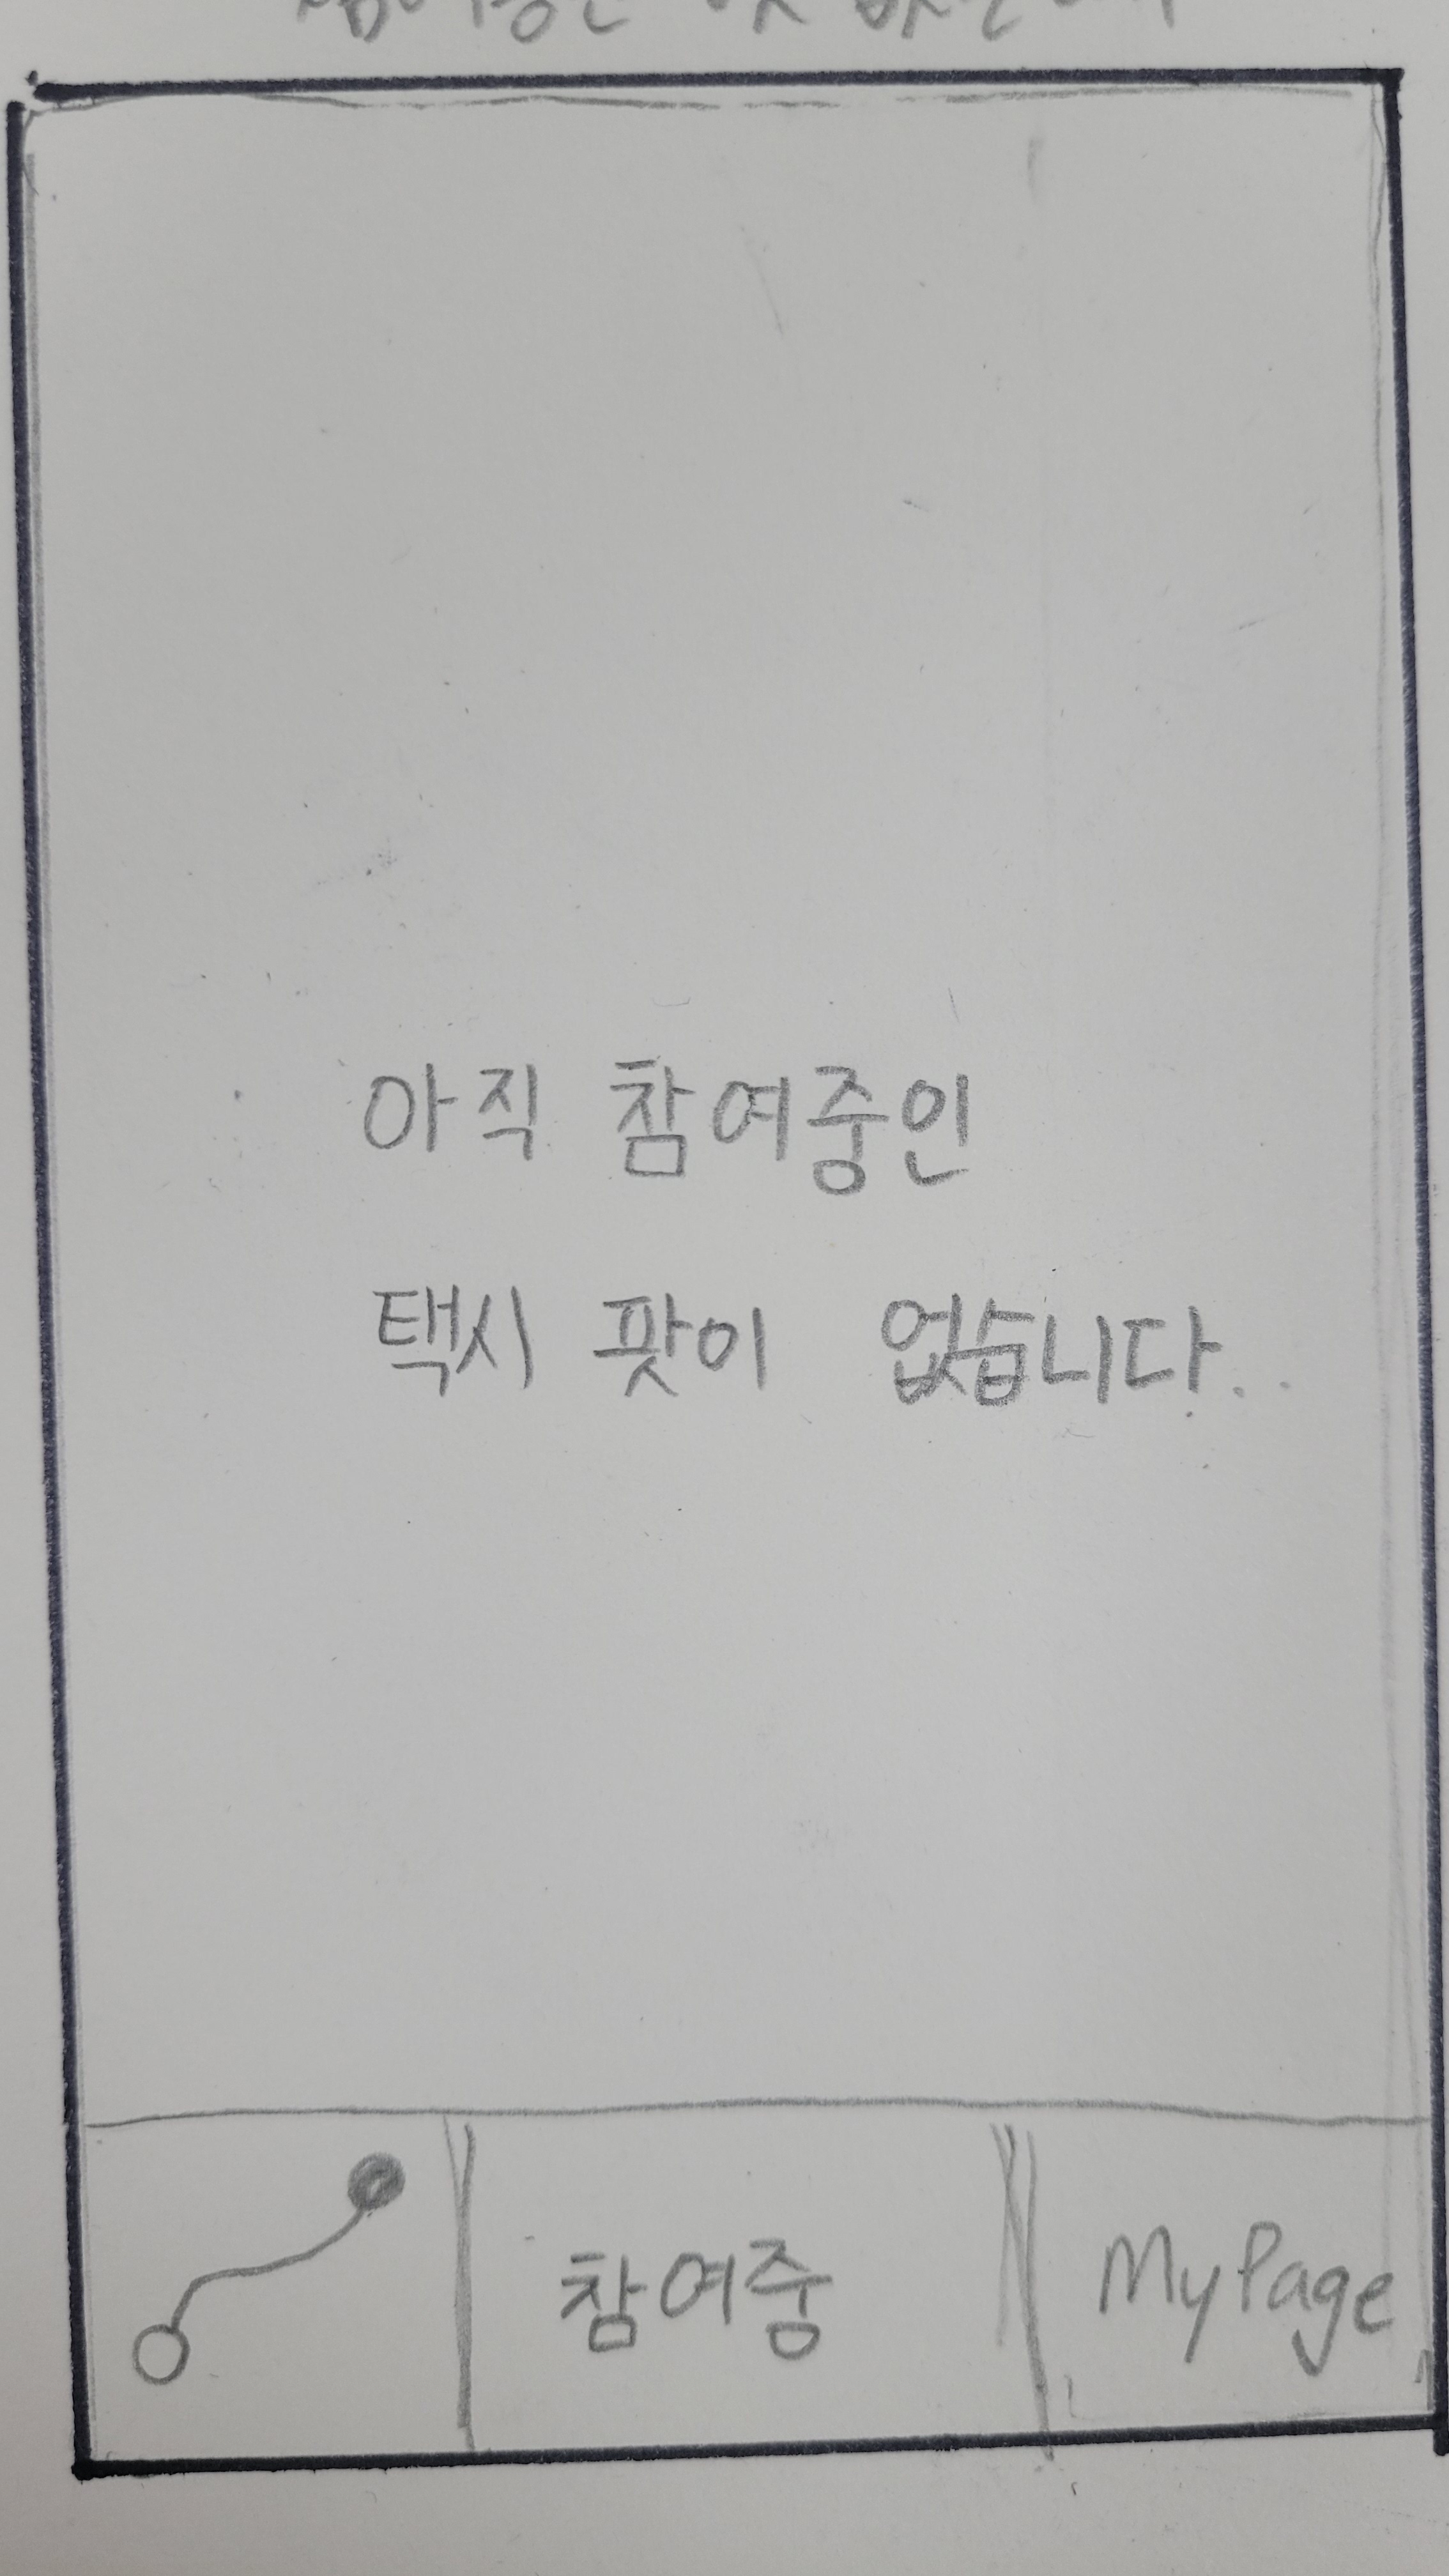 아직 참여중인
택시 팟이 없습니다..
참여중
MyPage